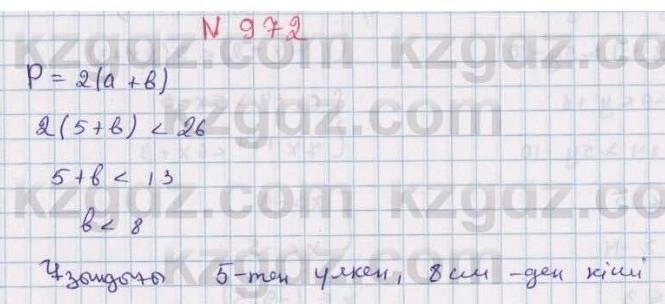 N 972
P = 2(a + b)
2(5+b) < 26
5+b < 13
b < 8
Ұзындығы 5-тен үлкен, 8 см -ден кіші
kzgdz.com kzgdz.com
kzgdz.com
kzgdz.com kzgdz.com
kzgdz.com